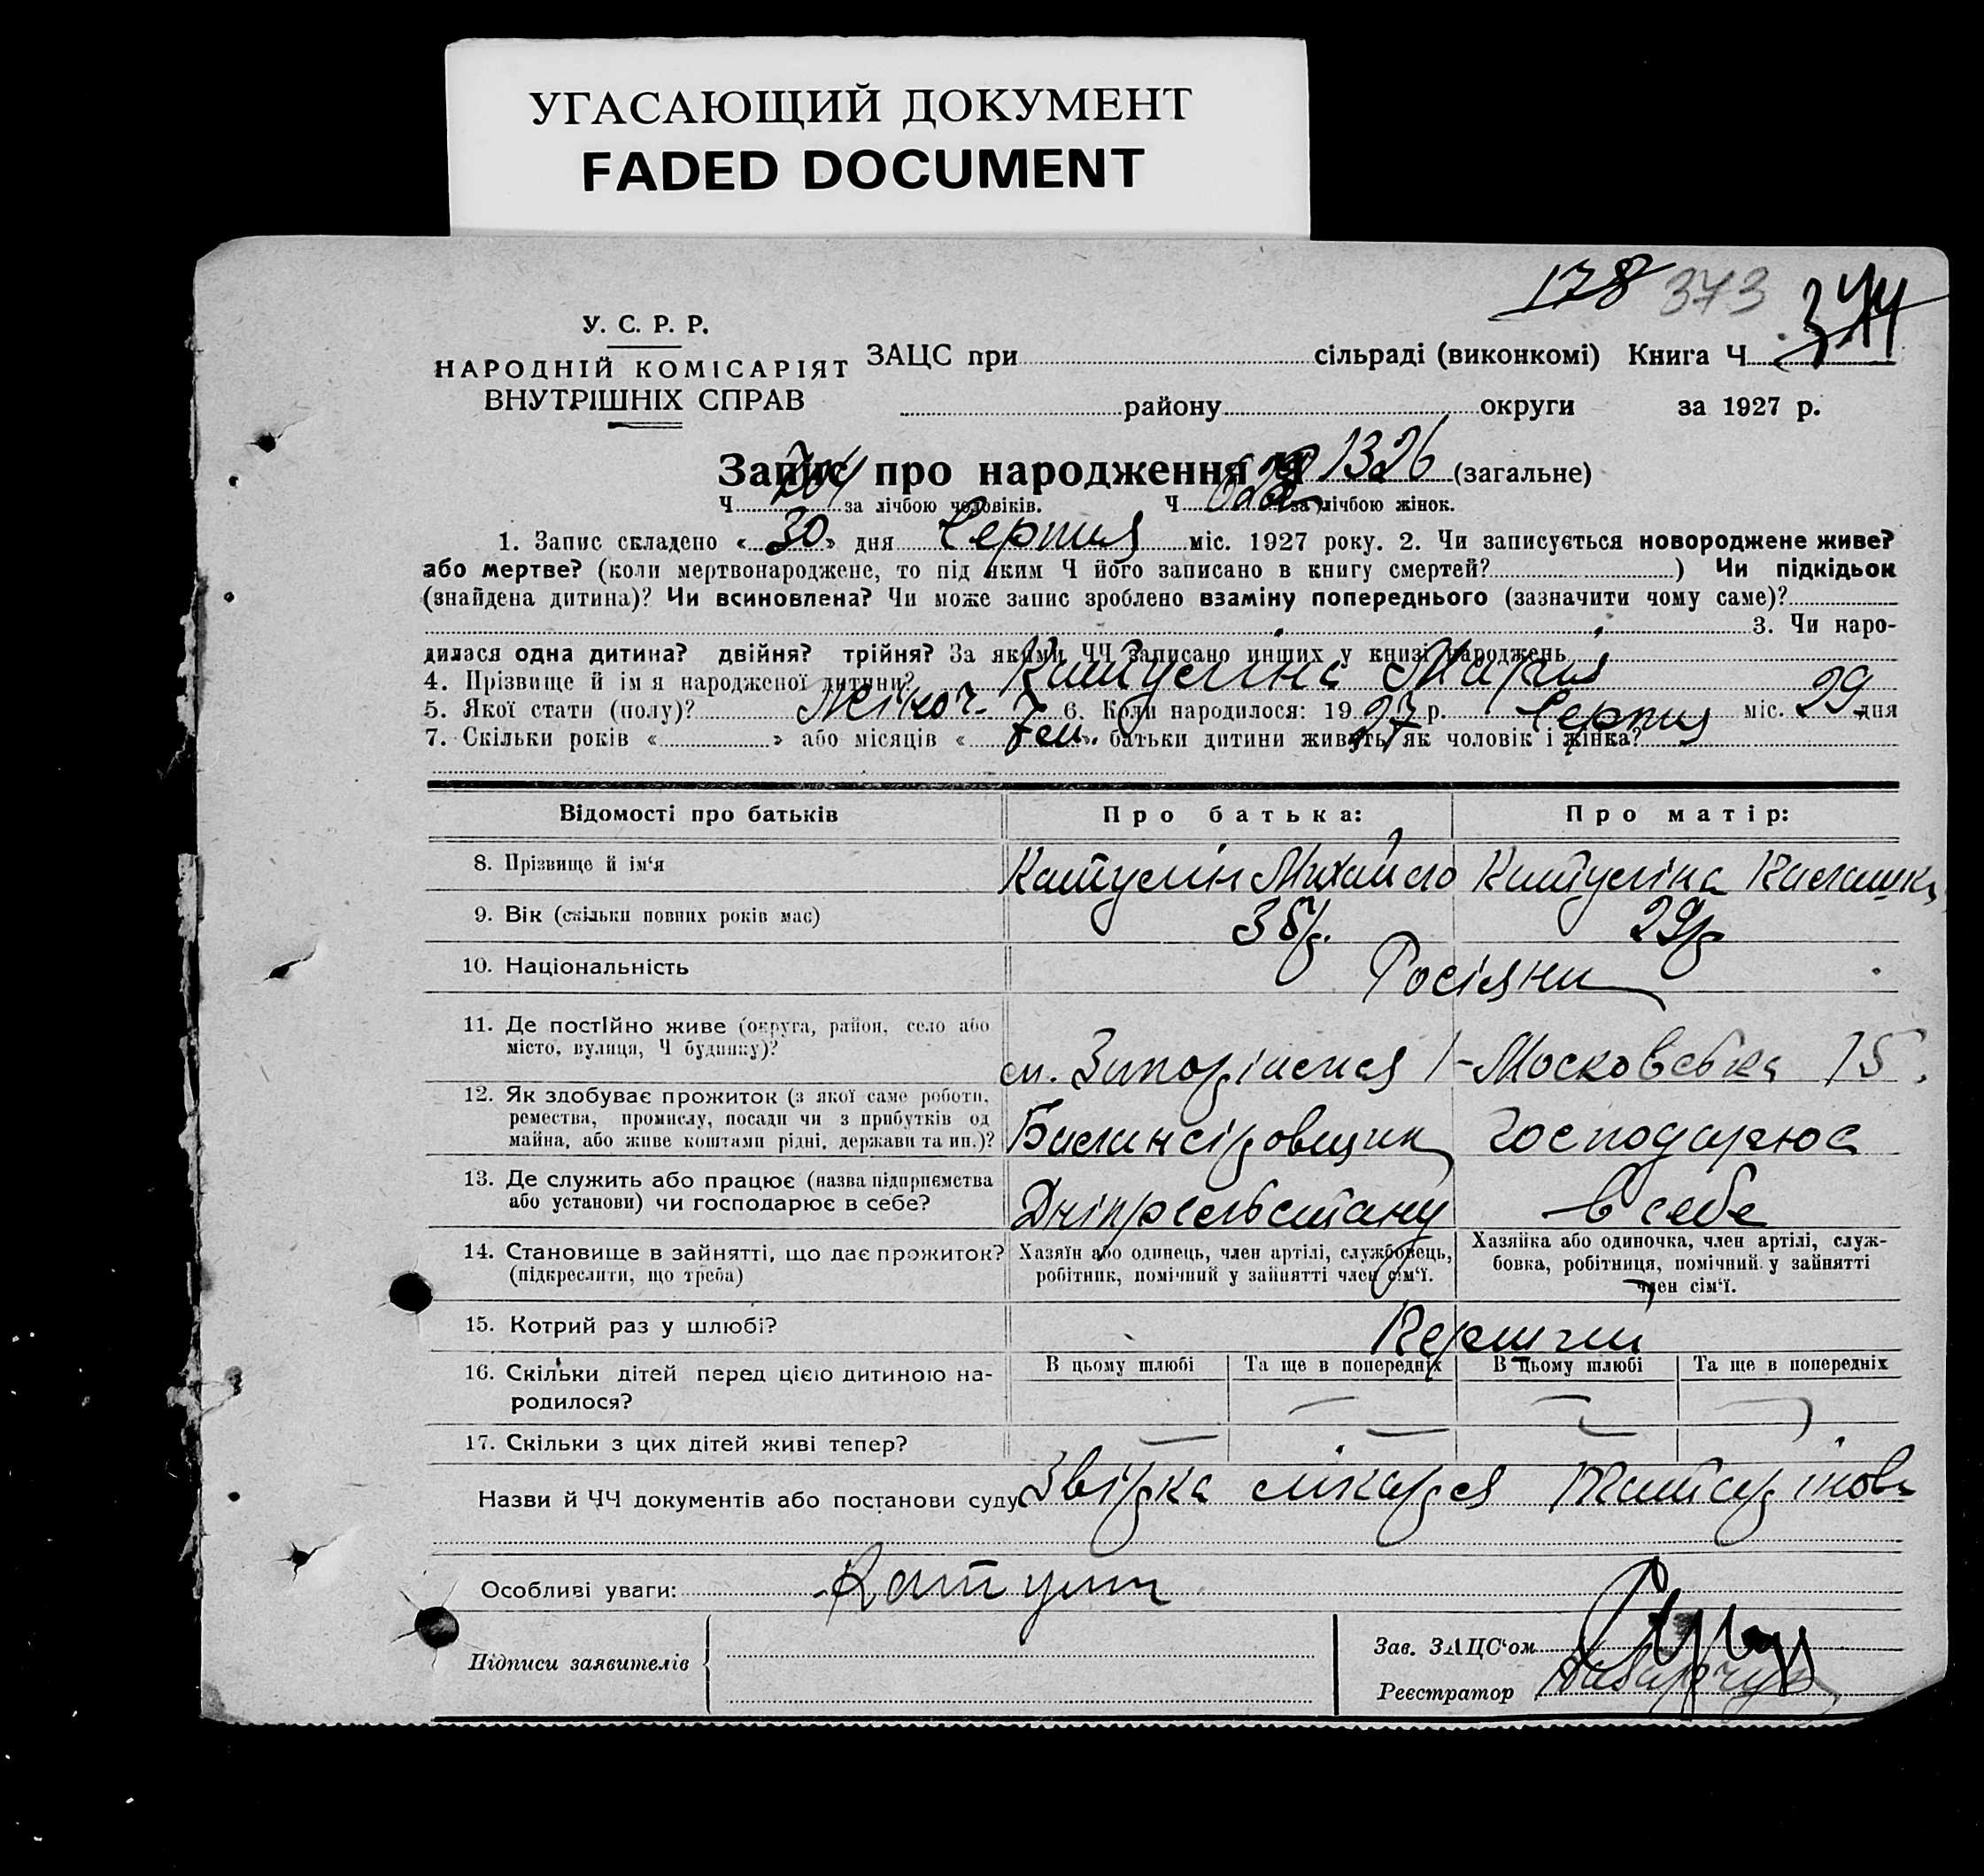 УГАСАЮЩИЙ ДОКУМЕНТ
FADED DOCUMENT
178 373 344
У. С. Р. Р.
НАРОДНІЙ КОМІСАРІЯТ
ВНУТРІШНІХ СПРАВ
ЗАЦС при сільраді (виконкомі) Книга Ч
району округи за 1927 р.
Запис про народження Ч 1326 (загальне)
Ч 704 за лічбою чоловіків. Ч 622 за лічбою жінок.
1. Запис складено « 30 » дня Серпня міс. 1927 року. 2. Чи записується новороджене живе?
або мертве? (коли мертвонароджене, то під яким Ч його записано в книгу смертей? ) Чи підкідьок
(знайдена дитина)? Чи всиновлена? Чи може запис зроблено взаміну попереднього (зазначити чому саме)?
3. Чи наро-
дилася одна дитина? двійня? трійня? За якими ЧЧ записано инших у книзі народжень
4. Прізвище й ім я народженої дитини? Катуліна Марія
5. Якої стати (полу)? Жіноч. 6. Коли народилося: 19 27 р. Серпня міс. 29 дня
7. Скільки років « » або місяців « » батьки дитини живуть як чоловік і жінка?
Відомості про батьків
Про батька:
Про матір:
8. Прізвище й ім‘я
Катулін Михайло
Катуліна
9. Вік (скільки повних років має)
29р
10. Національність
Росіяни
11. Де постійно живе (округа, район, село або
місто, вулиця, Ч будинку)?
м. Запоріжжя 1-Московська 15.
12. Як здобуває прожиток (з якої саме роботи,
ремества, промислу, посади чи з прибутків од
майна, або живе коштами рідні, держави та ин.)?
Балансіровщик
господарює
13. Де служить або працює (назва підприємства
або установи) чи господарює в себе?
Дніпрельстану
в себе
14. Становище в зайнятті, що дає прожиток?
(підкреслити, що треба)
Хазяїн або одинець, член артілі, службовець,
робітник, помічний у зайнятті член сім‘ї.
Хазяйка або одиночка, член артілі, служ-
бовка, робітниця, помічний у зайнятті
член сім‘ї.
15. Котрий раз у шлюбі?
16. Скільки дітей перед цією дитиною на-
родилося?
В цьому шлюбі
Та ще в попередніх
В цьому шлюбі
Та ще в попередніх
17. Скільки з цих дітей живі тепер?
Назви й ЧЧ документів або постанови суду Звірка лікаря
Особливі уваги: Катулин
Підписи заявителів
Зав. ЗАЦС‘ом
Реєстратор